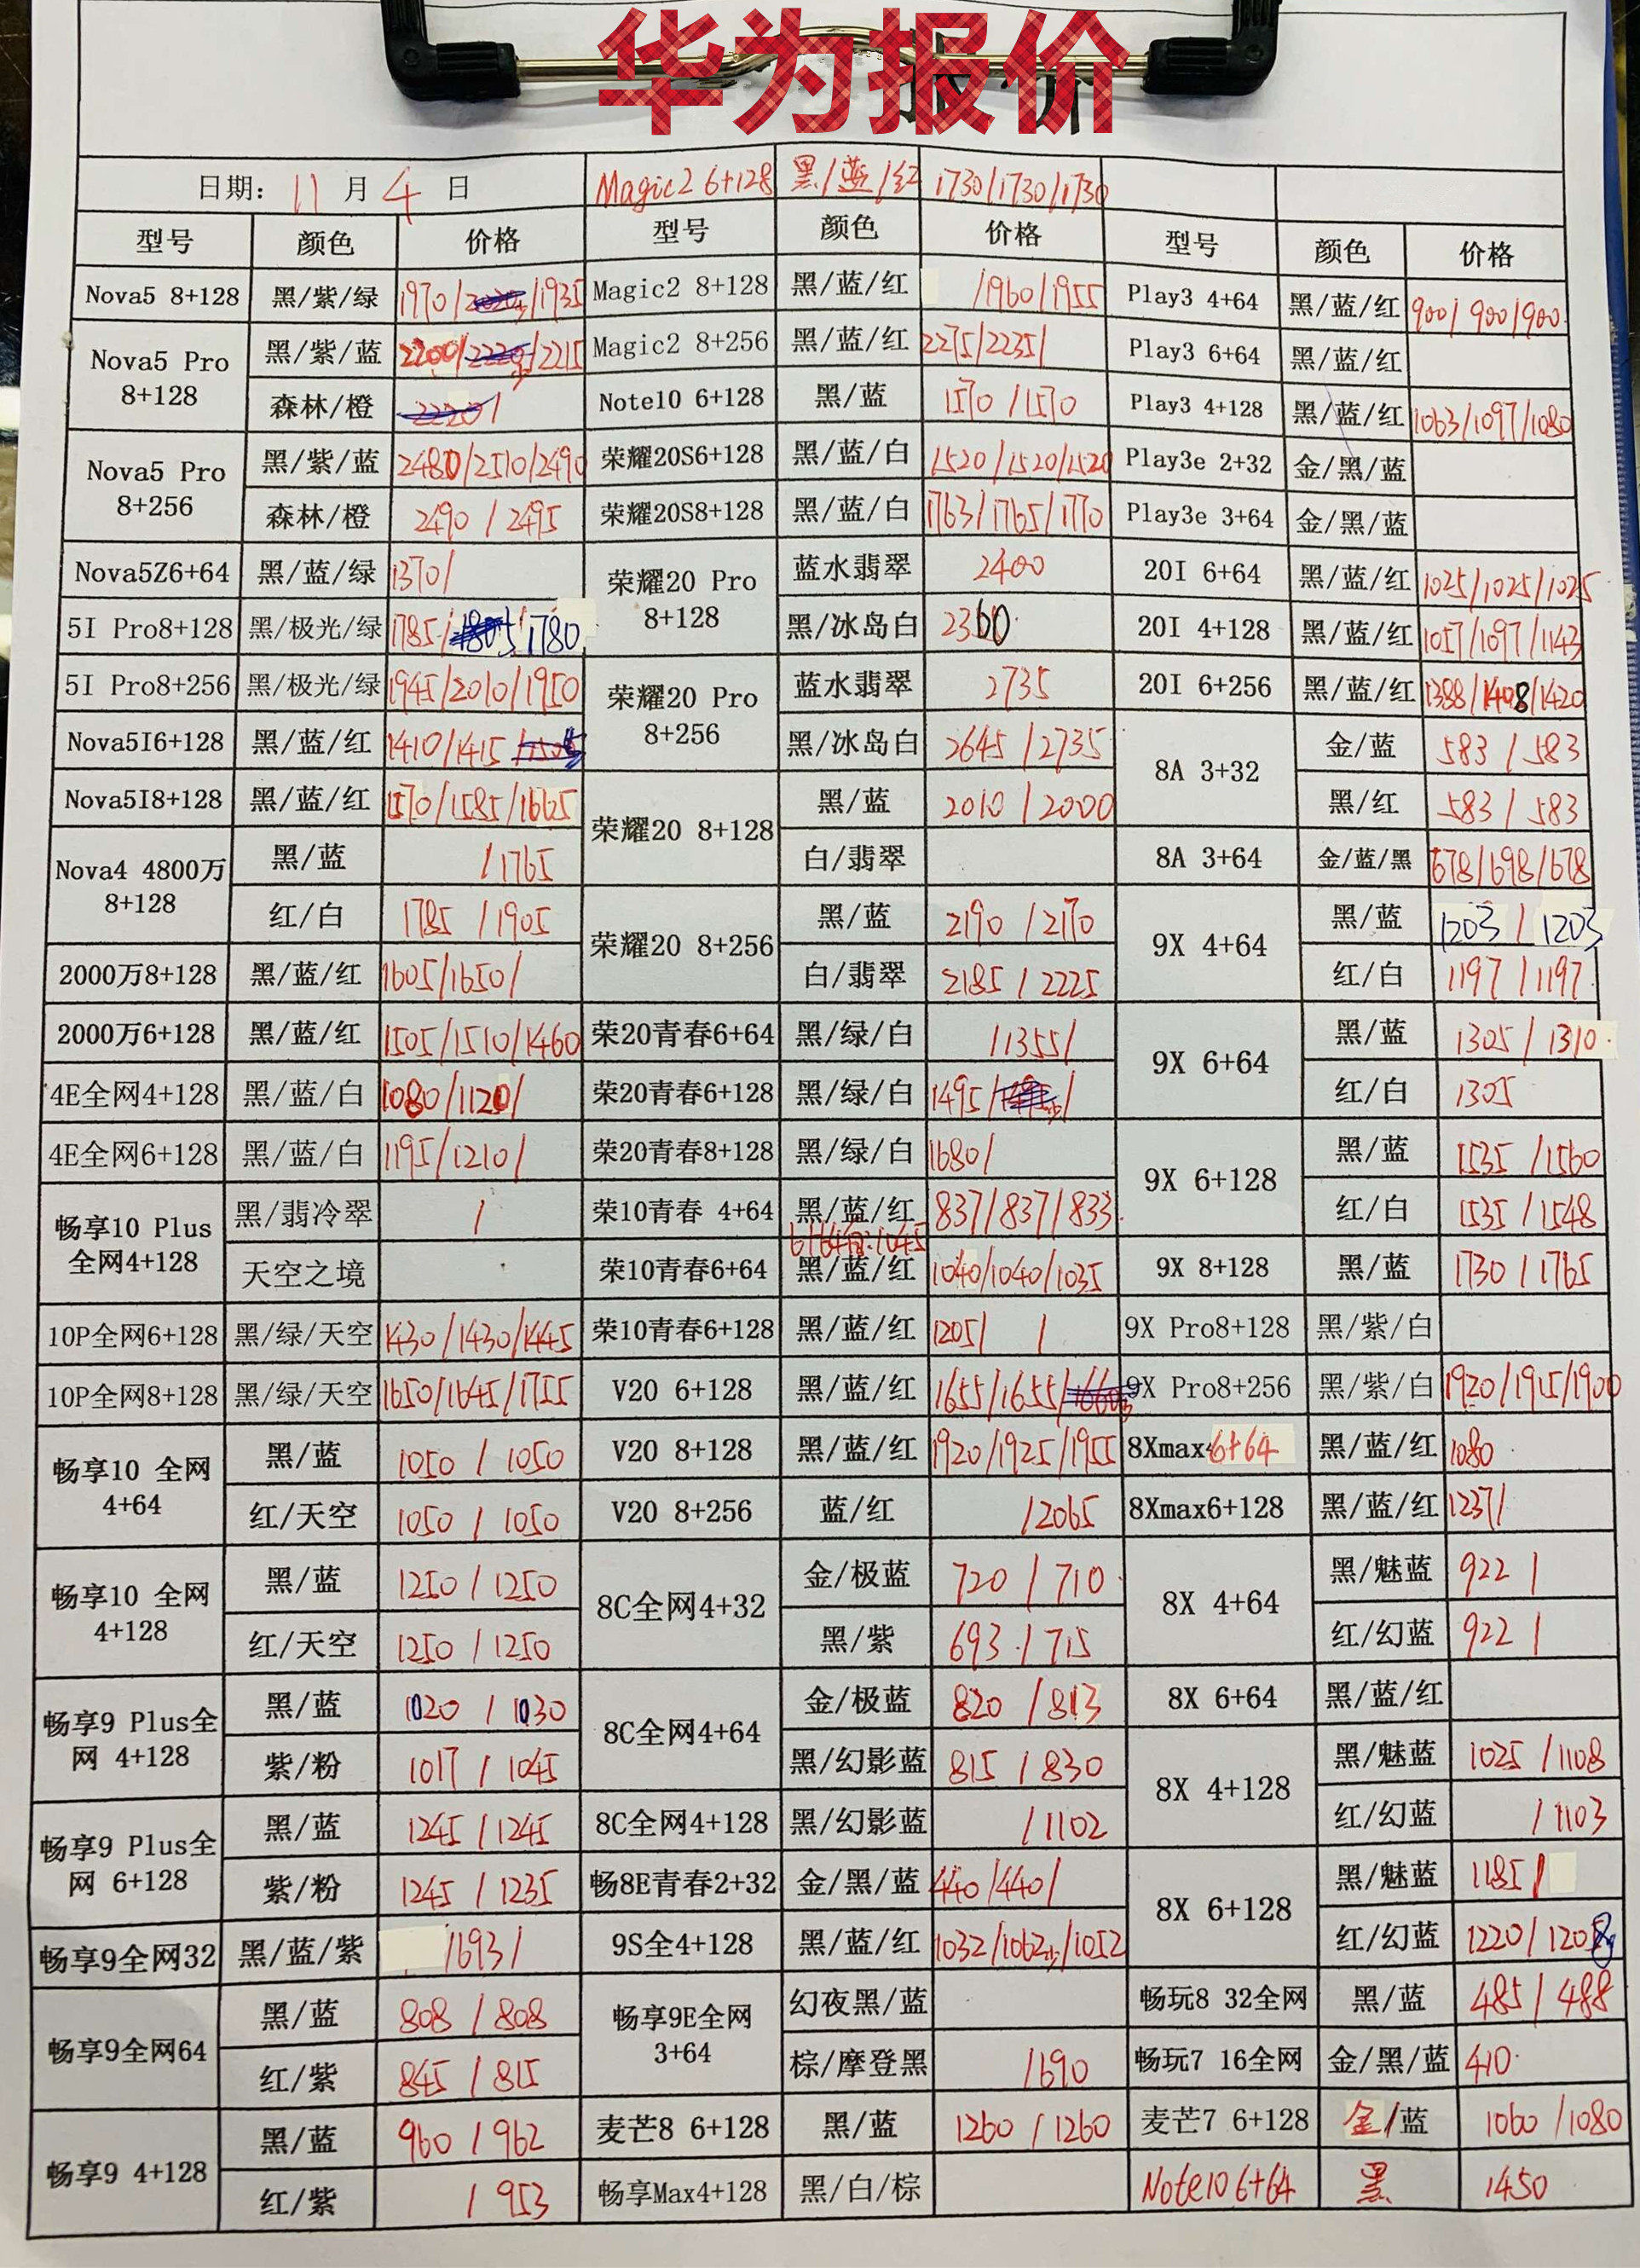 华为报价
日期: 11 月 4 日 Magic2 6+128 黑/蓝/红 1730/1730/1730
型号 颜色 价格 型号 颜色 价格 型号 颜色 价格
Nova5 8+128 黑/紫/绿 1970/ /1935 Magic2 8+128 黑/蓝/红 /1960/1955 Play3 4+64 黑/蓝/红 900/900/900
Nova5 Pro 8+128 黑/紫/蓝 2200/2220/2215 Magic2 8+256 黑/蓝/红 2275/2235/ Play3 6+64 黑/蓝/红
森林/橙 2220/ Note10 6+128 黑/蓝 1570/1570 Play3 4+128 黑/蓝/红 1063/1097/1080
Nova5 Pro 8+256 黑/紫/蓝 2480/2510/2490 荣耀20S6+128 黑/蓝/白 1520/1520/1520 Play3e 2+32 金/黑/蓝
森林/橙 2490/2495 荣耀20S8+128 黑/蓝/白 1763/1765/1770 Play3e 3+64 金/黑/蓝
Nova5Z6+64 黑/蓝/绿 1370/ 荣耀20 Pro 8+128 蓝水翡翠 2400 20I 6+64 黑/蓝/红 1025/1025/1025
5I Pro8+128 黑/极光/绿 1785/1805/1780 黑/冰岛白 2360 20I 4+128 黑/蓝/红 1057/1097/1143
5I Pro8+256 黑/极光/绿 1945/2010/1950 荣耀20 Pro 8+256 蓝水翡翠 2735 20I 6+256 黑/蓝/红 1388/1408/1420
Nova5I6+128 黑/蓝/红 1410/1415/ 黑/冰岛白 2645/2735 8A 3+32 金/蓝 583/583
Nova5I8+128 黑/蓝/红 1570/1585/1665 荣耀20 8+128 黑/蓝 2010/2000 黑/红 583/583
Nova4 4800万 8+128 黑/蓝 /1765 白/翡翠 8A 3+64 金/蓝/黑 678/698/678
红/白 1785/1905 荣耀20 8+256 黑/蓝 2190/2170 9X 4+64 黑/蓝 1203/1203
2000万8+128 黑/蓝/红 1605/1650/ 白/翡翠 2185/2225 红/白 1197/1197
2000万6+128 黑/蓝/红 1505/1510/1460 荣20青春6+64 黑/绿/白 /1355/ 9X 6+64 黑/蓝 1305/1310
4E全网4+128 黑/蓝/白 1080/1120/ 荣20青春6+128 黑/绿/白 1495/ / 红/白 1305
4E全网6+128 黑/蓝/白 1195/1210/ 荣20青春8+128 黑/绿/白 1680/ 9X 6+128 黑/蓝 1535/1560
畅享10 Plus 全网4+128 黑/翡冷翠 / 荣10青春 4+64 黑/蓝/红 837/837/833 红/白 1535/1548
6+64白:1045
天空之境 荣10青春6+64 黑/蓝/红 1040/1040/1035 9X 8+128 黑/蓝 1730/1765
10P全网6+128 黑/绿/天空 1430/1430/1445 荣10青春6+128 黑/蓝/红 1205/ / 9X Pro8+128 黑/紫/白
10P全网8+128 黑/绿/天空 1650/1645/1755 V20 6+128 黑/蓝/红 1655/1655/1660 9X Pro8+256 黑/紫/白 1920/1915/1900
畅享10 全网 4+64 黑/蓝 1050/1050 V20 8+128 黑/蓝/红 1920/1925/1955 8Xmax 6+64 黑/蓝/红 1080
红/天空 1050/1050 V20 8+256 蓝/红 /2065 8Xmax6+128 黑/蓝/红 1237/
畅享10 全网 4+128 黑/蓝 1250/1250 8C全网4+32 金/极蓝 720/710 8X 4+64 黑/魅蓝 922/
红/天空 1250/1250 黑/紫 693/715 红/幻蓝 922/
畅享9 Plus全网 4+128 黑/蓝 1020/1030 8C全网4+64 金/极蓝 820/813 8X 6+64 黑/蓝/红
紫/粉 1017/1045 黑/幻影蓝 815/830 8X 4+128 黑/魅蓝 1025/1108
畅享9 Plus全网 6+128 黑/蓝 1245/1245 8C全网4+128 黑/幻影蓝 /1102 红/幻蓝 /1103
紫/粉 1245/1235 畅8E青春2+32 金/黑/蓝 440/440/ 8X 6+128 黑/魅蓝 1185/
畅享9全网32 黑/蓝/紫 /693/ 9S全4+128 黑/蓝/红 1032/1062少/1052 红/幻蓝 1220/1208
畅享9全网64 黑/蓝 808/808 畅享9E全网 3+64 幻夜黑/蓝 畅玩8 32全网 黑/蓝 485/488
红/紫 845/815 棕/摩登黑 /690 畅玩7 16全网 金/黑/蓝 410
畅享9 4+128 黑/蓝 960/962 麦芒8 6+128 黑/蓝 1260/1260 麦芒7 6+128 金/蓝 1060/1080
红/紫 /953 畅享Max4+128 黑/白/棕 Note10 6+64 黑 1450